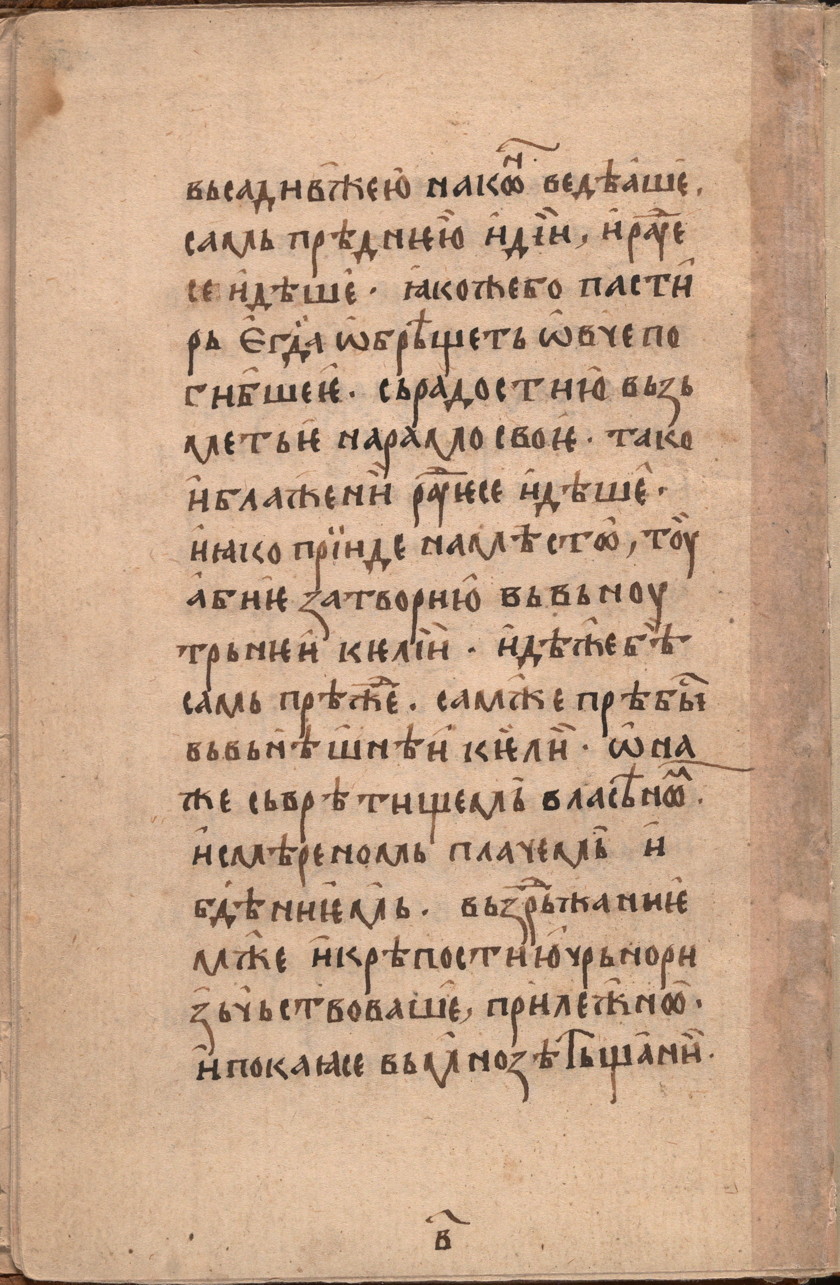 вьсаднвь́жею̀ накѡ̑н ведѣа́ше.
самь прѣднѥю̀ и҆дїи, и҆раꙋ҆е
се и҆дѣшѐ · ꙗкоже́бо пасти
рь Є҆гд̈а ѡ҆брѣщеть ѡ҆вчепо
гиб́шеѥ̀ · сьрадостию̀ вьзь
метьѥ̀ нарамо своѥ̀ · тако
и҆блаже́нїи рꙋ҆ѥсе и҆дѣшѐ ·
и҆ꙗко прїиде намѣстѡ̀, тоу̀
а҆биѥ̀ затворию̀ вьвьноу
трьнѥи҆ келїи · и҆дѣжебѣ̀
самь прѣжⷣе̑ . самже прѣбы̑
вьвьнѣш́нѣи҆ ке́лїи · ѡ҆на
же сьврѣтищемь̀ власѣнѡⷨ .
и҆смѣреномь плачемь̀ и҆
бд́ѣниѥм̀ь . вьзⷣрьжаниѥ̀
мже и҆крѣпостию̀чрьнори
з́ьчьствовашѐ, прилеж́нѡ .
и҆покаꙗсе вьм́нозѣ Тьща́нїи .
в҃